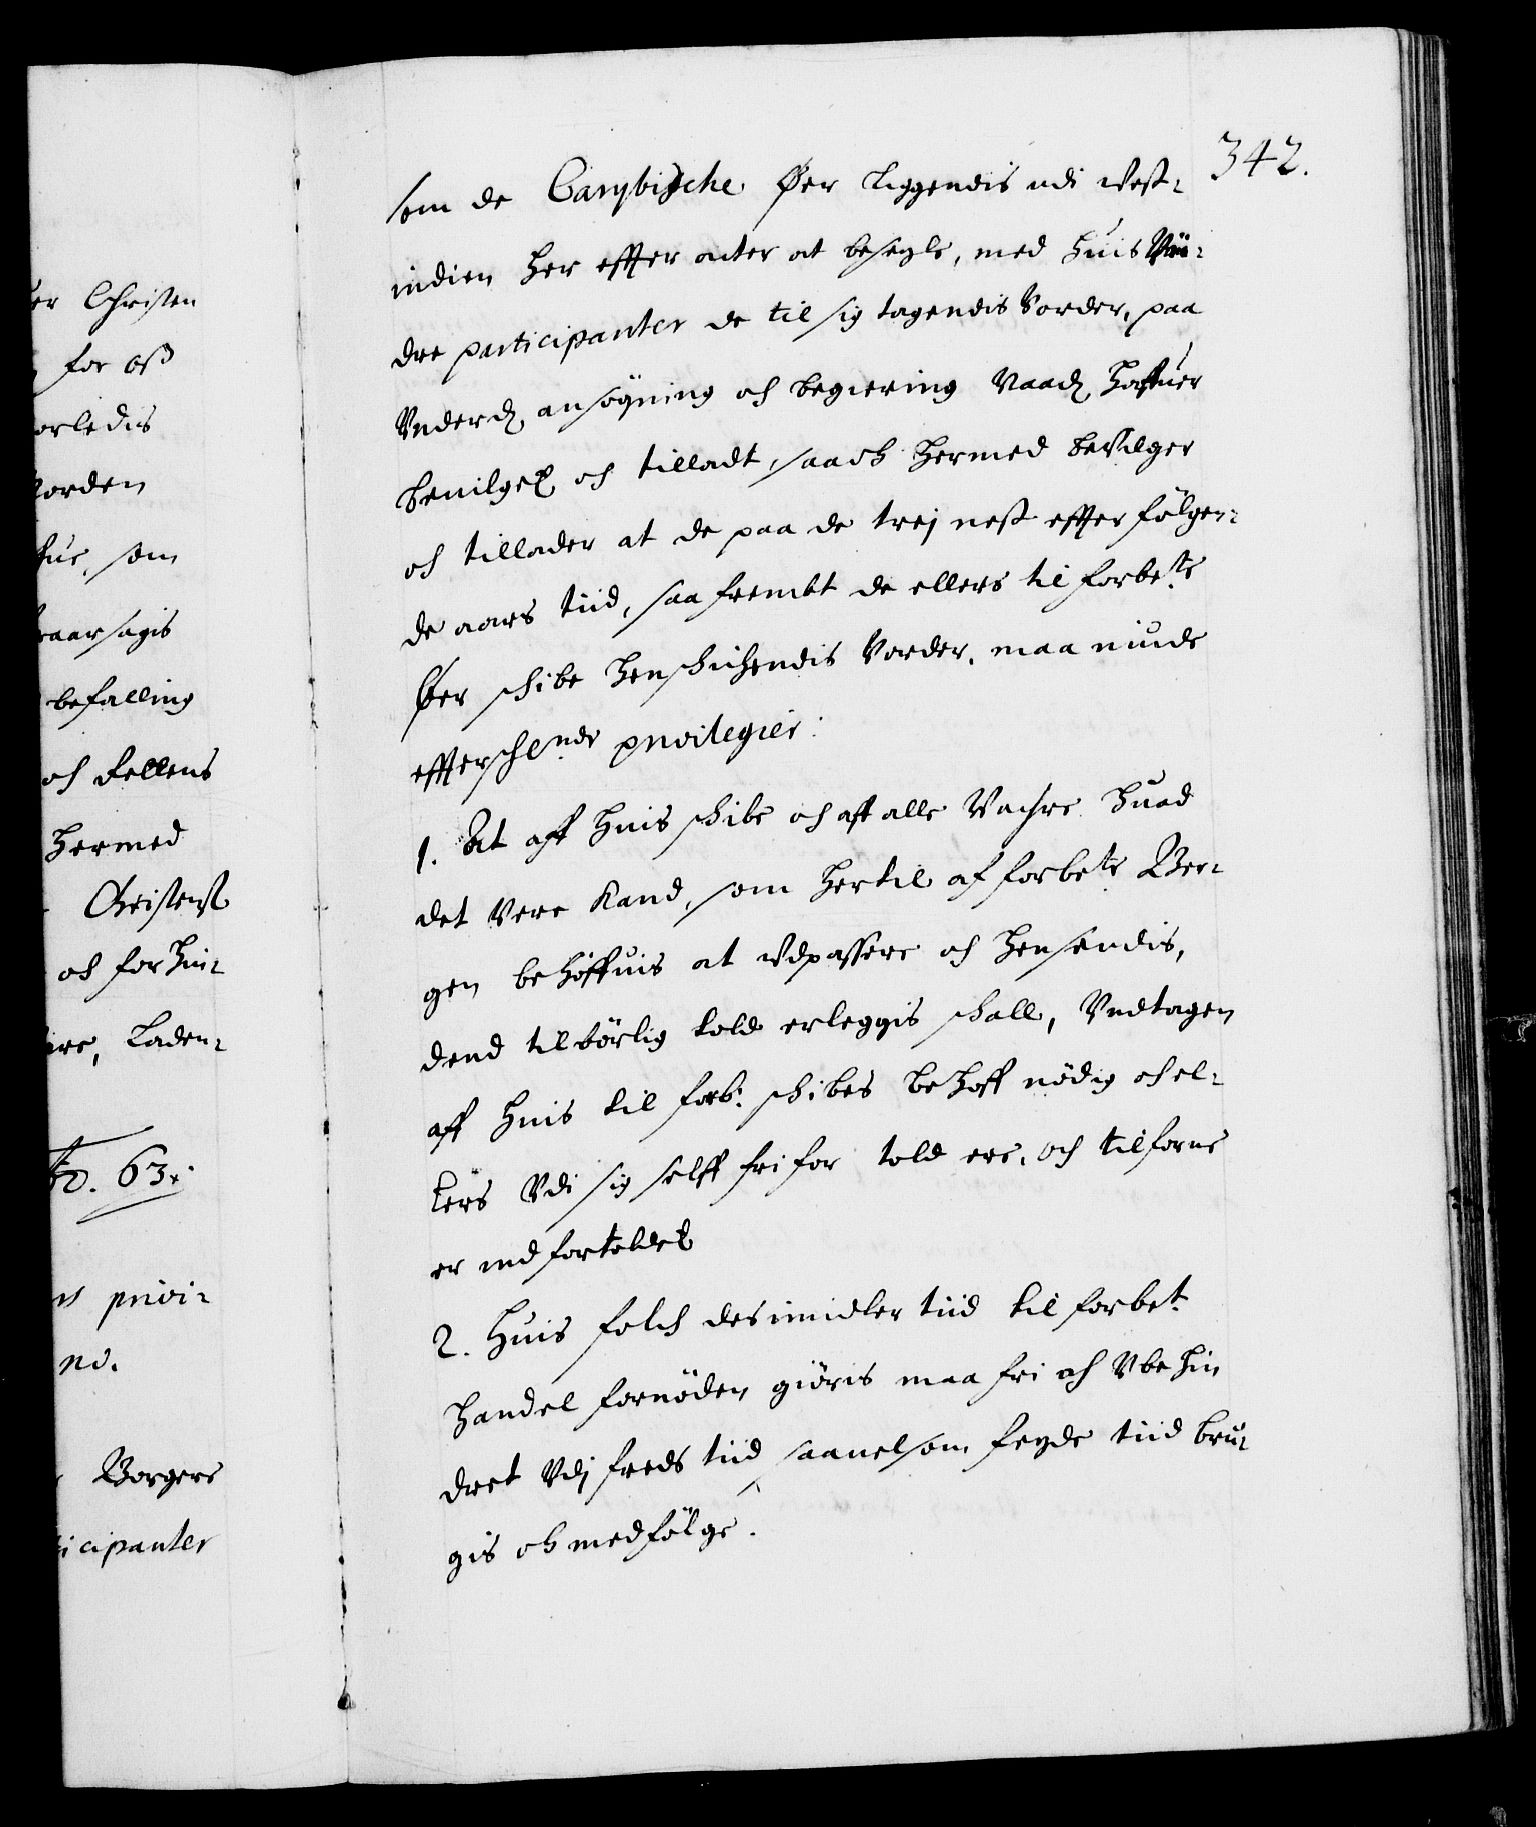 er Christen
for oss
orledis
orden
fue, som
raarsagis
befalling
och fellens
hermed
Christenst
och forhin-
ire, Laden-
63.
privi-
Borgere
icipanter
342.
som de Carybische Øer liggendis udi West-
indien her effter acter at besegle, med huis
dre participanter de til sig tagendis vorder, paa
Underd. ansøgning och begiering Naad. haffuer
beuilget och tilladt, saa och hermed beuilger
och tillader at de paa de trej nest effter følgen-
de aars tiid, saa frembt de ellers til forbete
Øer schibe henschickendis vorder, maa niude
effterschrefne privilegier:
1. At aff huis schibe och aff alle Vahre huad
det Vere kand, som hertil af forbete Ber-
gen behøffuis at udpassere och hensendis,
dend tilbørlig told erleggis schall, Undtagen
aff huis til forb: schibes behoff nødig och el-
lers Udi sig selff fri for told ere, och tilforne
er indfortoldet
2. Huis folch des imidler tiid til forbet
handel fornøden giøris maa fri och Ubehin
dret Udj freds tiid saauelsom feyde tiid bru-
gis och medfølge.